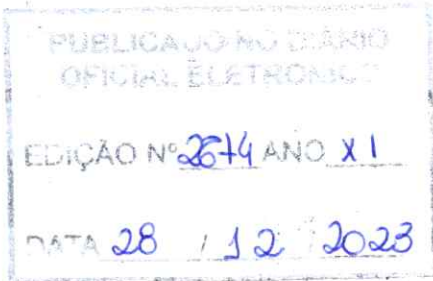 PUBLICADO NO DIÁRIO
OFICIAL ELETRÔNICO
EDIÇÃO Nº 2674 ANO XI
DATA 28 / 12 2023